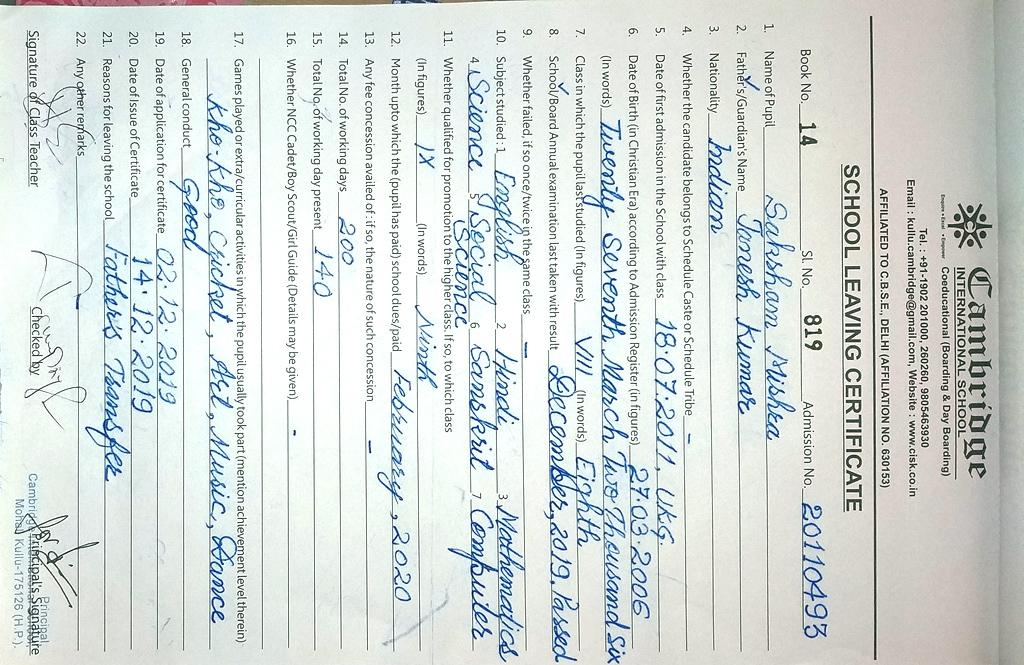 Cambridge
INTERNATIONAL SCHOOL
Coeducational (Boarding & Day Boarding)
Tel. : +91-1902 201000, 260260, 9805463930
Email : kullu.cambridge@gmail.com, Website : www.cisk.co.in
AFFILIATED TO C.B.S.E., DELHI (AFFILIATION NO. 630153)
SCHOOL LEAVING CERTIFICATE
Book No. 14 Sl. No. 819 Admission No. 20110493
1. Name of Pupil Saksham Mishra
2. Father's/Guardian's Name Tonesh Kumar
3. Nationality Indian
4. Whether the candidate belongs to Schedule Caste or Schedule Tribe -
5. Date of first admission in the School with class 18.07.2011, UKG.
6. Date of Birth (in Christian Era) according to Admission Register (in figures) 27.03.2006
(In words) Twenty Seventh March Two Thousand Six
7. Class in which the pupil last studied (In figures) VIII (In words) Eighth
8. School/Board Annual examination last taken with result December, 2019. Passed
9. Whether failed, if so once/twice in the same class -
10. Subject studied : 1 English 2 Hindi 3 Mathematics
4 Science 5 Social Science 6 Sanskrit 7 Computer
11. Whether qualified for promotion to the higher class. If so, to which class
(In figures) IX (In words) Ninth
12. Month upto which the (pupil has paid) school dues/paid February, 2020
13. Any fee concession availed of : if so, the nature of such concession -
14. Total No. of working days 200
15. Total No. of working day present 140
16. Whether NCC Cadet/Boy Scout/Girl Guide (Details may be given) -
17. Games played or extra/curricular activities in which the pupil usually took part (mention achievement level therein)
Kho-Kho, Cricket, Art, Music, Dance
18. General conduct Good
19. Date of application for certificate 02.12.2019
20. Date of Issue of Certificate 14.12.2019
21. Reasons for leaving the school Father's Transfer
22. Any other remarks
Signature of Class Teacher checked by Principal's Signature
Principal
Cambridge International School
Mohal Kullu-175126 (H.P.)